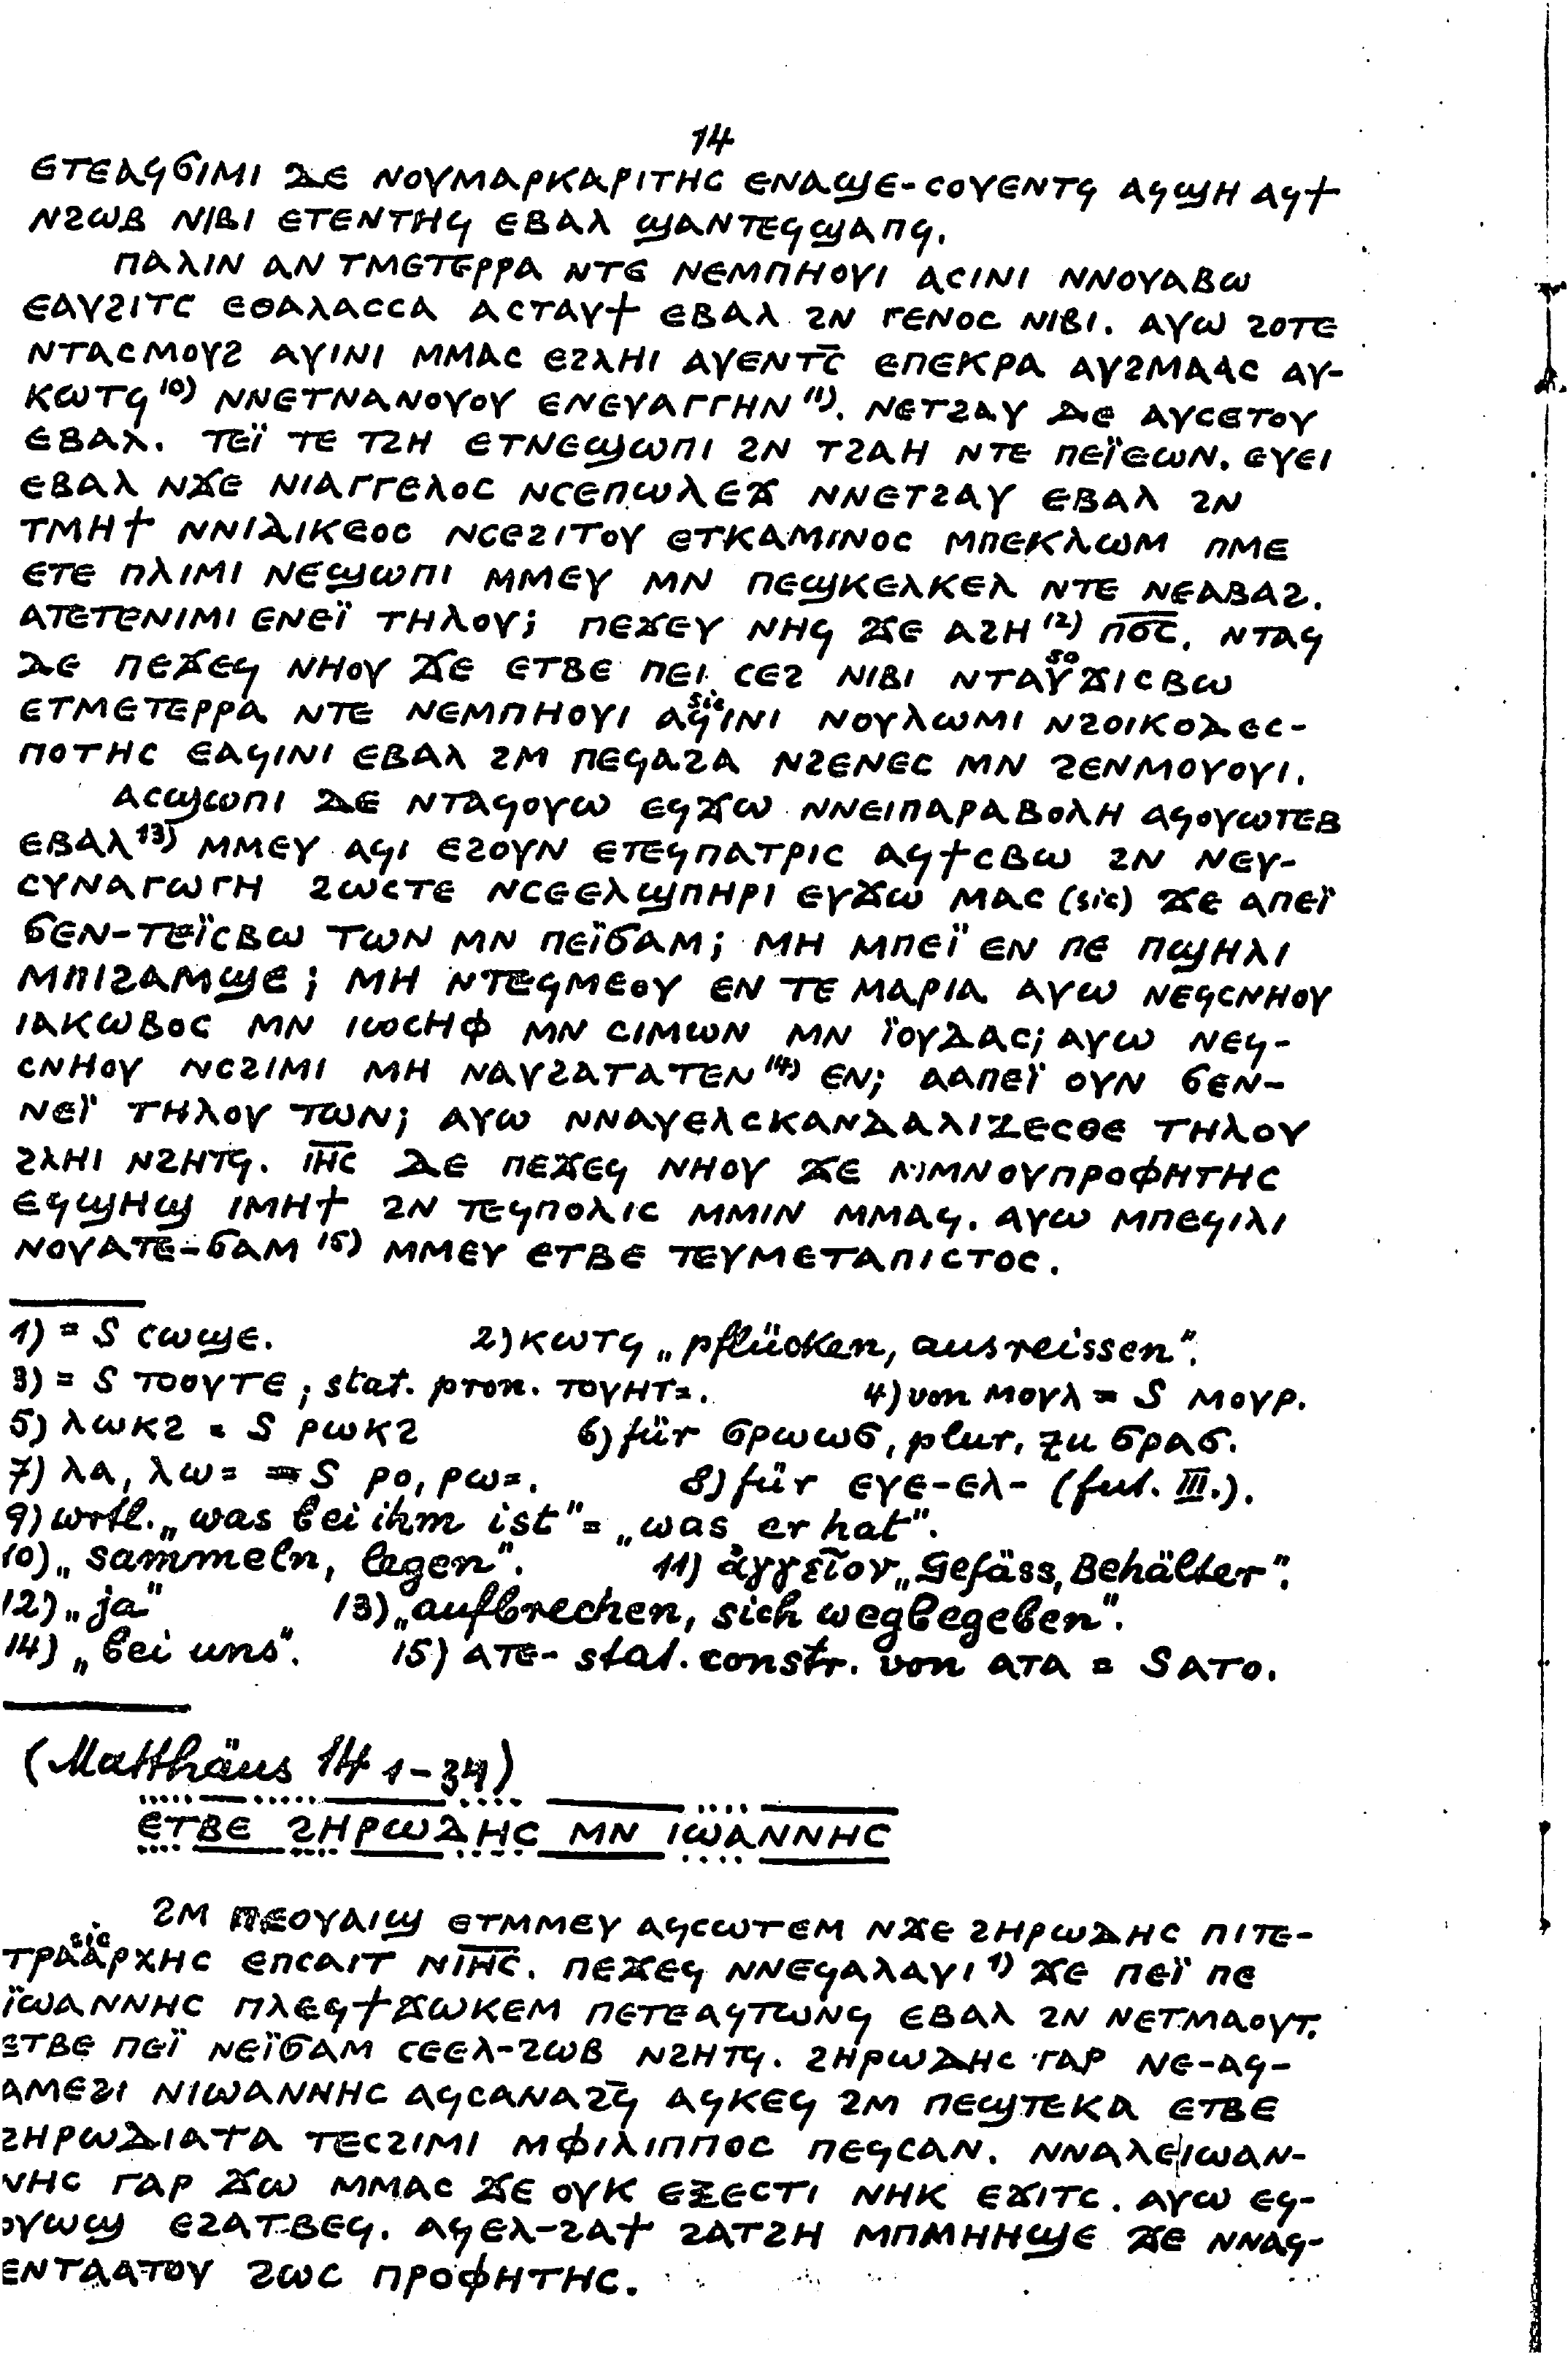 14
ⲉⲧⲉⲁϥϭⲓⲙⲓ ⲇⲉ ⲛⲟⲩⲙⲁⲣⲕⲁⲣⲓⲧⲏⲥ ⲉⲛⲁϣⲉ-ⲥⲟⲩⲉⲛⲧϥ ⲁϥϣⲏ ⲁϥϯ
ⲛϩⲱⲃ ⲛⲓⲃⲓ ⲉⲧⲉⲛⲧⲏϥ ⲉⲃⲁⲗ ϣⲁⲛⲧⲉϥϣⲁⲡϥ.
ⲡⲁⲗⲓⲛ ⲁⲛ ⲧⲙⲉⲧⲉⲣⲣⲁ ⲛⲧⲉ ⲛⲉⲙⲡⲏⲟⲩⲓ ⲁⲥⲓⲛⲓ ⲛⲛⲟⲩⲁⲃⲱ
ⲉⲁⲩϩⲓⲧⲥ ⲉⲑⲁⲗⲁⲥⲥⲁ ⲁⲥⲧⲁⲩϯ ⲉⲃⲁⲗ ϩⲛ ⲅⲉⲛⲟⲥ ⲛⲓⲃⲓ. ⲁⲩⲱ ϩⲟⲧⲉ
ⲛⲧⲁⲥⲙⲟⲩϩ ⲁⲩⲓⲛⲓ ⲙⲙⲁⲥ ⲉϩⲗⲏⲓ ⲁⲩⲉⲛⲧⲥ̅ ⲉⲡⲉⲕⲣⲁ ⲁⲩϩⲙⲁⲁⲥ ⲁⲩ-
ⲕⲱⲧϥ 10) ⲛⲛⲉⲧⲛⲁⲛⲟⲩⲟⲩ ⲉⲛⲉⲩⲁⲅⲅⲏⲛ 11). ⲛⲉⲧϩⲁⲩ ⲇⲉ ⲁⲩⲥⲉⲧⲟⲩ
ⲉⲃⲁⲗ. ⲧⲉⲓ̈ ⲧⲉ ⲧϩⲏ ⲉⲧⲛⲉϣⲱⲡⲓ ϩⲛ ⲧϩⲁⲏ ⲛⲧⲉ ⲡⲉⲓ̈ⲉⲱⲛ. ⲉⲩⲉⲓ
ⲉⲃⲁⲗ ⲛϫⲉ ⲛⲓⲁⲅⲅⲉⲗⲟⲥ ⲛⲥⲉⲡⲱⲗⲉϫ ⲛⲛⲉⲧϩⲁⲩ ⲉⲃⲁⲗ ϩⲛ
ⲧⲙⲏϯ ⲛⲛⲓⲇⲓⲕⲉⲟⲥ ⲛⲥⲉϩⲓⲧⲟⲩ ⲉⲧⲕⲁⲙⲓⲛⲟⲥ ⲙⲡⲉⲕⲗⲱⲙ ⲡⲙⲉ
ⲉⲧⲉ ⲡⲗⲓⲙⲓ ⲛⲉϣⲱⲡⲓ ⲙⲙⲉⲩ ⲙⲛ ⲡⲉϣⲕⲉⲗⲕⲉⲗ ⲛⲧⲉ ⲛⲉⲁⲃⲁϩ.
ⲁⲧⲉⲧⲉⲛⲓⲙⲓ ⲉⲛⲉⲓ̈ ⲧⲏⲗⲟⲩ; ⲡⲉϫⲉⲩ ⲛⲏϥ ϫⲉ ⲁϩⲏ 12) ⲡ̅ϭ̅ⲥ̅. ⲛⲧⲁϥ
ⲇⲉ ⲡⲉϫⲉϥ ⲛⲏⲟⲩ ϫⲉ ⲉⲧⲃⲉ ⲡⲉⲓ ⲥⲉϩ ⲛⲓⲃⲓ ⲛⲧⲁⲩ (so) ϫⲓⲥⲃⲱ
ⲉⲧⲙⲉⲧⲉⲣⲣⲁ ⲛⲧⲉ ⲛⲉⲙⲡⲏⲟⲩⲓ ⲁϥ (sic) ⲓⲛⲓ ⲛⲟⲩⲗⲱⲙⲓ ⲛϩⲟⲓⲕⲟⲇⲉⲥ-
ⲡⲟⲧⲏⲥ ⲉⲁϥⲓⲛⲓ ⲉⲃⲁⲗ ϩⲙ ⲡⲉϥⲁϩⲁ ⲛϩⲉⲛⲉⲥ ⲙⲛ ϩⲉⲛⲙⲟⲩⲟⲩⲓ.
ⲁⲥϣⲱⲡⲓ ⲇⲉ ⲛⲧⲁϥⲟⲩⲱ ⲉϥϫⲱ ⲛⲛⲉⲓⲡⲁⲣⲁⲃⲟⲗⲏ ⲁϥⲟⲩⲱⲧⲉⲃ
ⲉⲃⲁⲗ 13) ⲙⲙⲉⲩ ⲁϥⲓ ⲉϩⲟⲩⲛ ⲉⲧⲉϥⲡⲁⲧⲣⲓⲥ ⲁϥϯⲥⲃⲱ ϩⲛ ⲛⲉⲩ-
ⲥⲩⲛⲁⲅⲱⲅⲏ ϩⲱⲥⲧⲉ ⲛⲥⲉⲉⲗϣⲡⲏⲣⲓ ⲉⲩϫⲱ ⲙⲁⲥ (sic) ϫⲉ ⲁⲡⲉⲓ̈
ϭⲉⲛ-ⲧⲉⲓ̈ⲥⲃⲱ ⲧⲱⲛ ⲙⲛ ⲡⲉⲓ̈ϭⲁⲙ; ⲙⲏ ⲙⲡⲉⲓ̈ ⲉⲛ ⲡⲉ ⲡϣⲏⲗⲓ
ⲙⲡⲓϩⲁⲙϣⲉ; ⲙⲏ ⲛⲧⲉϥⲙⲉⲟⲩ ⲉⲛ ⲧⲉ ⲙⲁⲣⲓⲁ ⲁⲩⲱ ⲛⲉϥⲥⲛⲏⲟⲩ
ⲓⲁⲕⲱⲃⲟⲥ ⲙⲛ ⲓⲱⲥⲏⲫ ⲙⲛ ⲥⲓⲙⲱⲛ ⲙⲛ ⲓ̈ⲟⲩⲇⲁⲥ; ⲁⲩⲱ ⲛⲉϥ-
ⲥⲛⲏⲟⲩ ⲛⲥϩⲓⲙⲓ ⲙⲏ ⲛⲁⲩϩⲁⲧⲁⲧⲉⲛ 14) ⲉⲛ; ⲁⲁⲡⲉⲓ̈ ⲟⲩⲛ ϭⲉⲛ-
ⲛⲉⲓ̈ ⲧⲏⲗⲟⲩ ⲧⲱⲛ; ⲁⲩⲱ ⲛⲛⲁⲩⲉⲗⲥⲕⲁⲛⲇⲁⲗⲓⲍⲉⲥⲑⲉ ⲧⲏⲗⲟⲩ
ϩⲗⲏⲓ ⲛϩⲏⲧϥ. ⲓ̅ⲏ̅ⲥ̅ ⲇⲉ ⲡⲉϫⲉϥ ⲛⲏⲟⲩ ϫⲉ ⲙⲙⲛⲟⲩⲡⲣⲟⲫⲏⲧⲏⲥ
ⲉϥϣⲏϣ ⲓⲙⲏϯ ϩⲛ ⲧⲉϥⲡⲟⲗⲓⲥ ⲙⲙⲓⲛ ⲙⲙⲁϥ. ⲁⲩⲱ ⲙⲡⲉϥⲓⲗⲓ
ⲛⲟⲩⲁⲧⲉ-ϭⲁⲙ 15) ⲙⲙⲉⲩ ⲉⲧⲃⲉ ⲧⲉⲩⲙⲉⲧⲁⲡⲓⲥⲧⲟⲥ.
1) = S ⲥⲱϣⲉ. 2) ⲕⲱⲧϥ „pflücken, ausreissen".
3) = S ⲧⲟⲟⲩⲧⲉ, stat. pron. ⲧⲟⲩⲏⲧ=. 4) von ⲙⲟⲩⲗ = S ⲙⲟⲩⲣ.
5) ⲗⲱⲕϩ = S ⲣⲱⲕϩ 6) für ϭⲣⲱⲱϭ, plur. zu ϭⲣⲁϭ.
7) ⲗⲁ, ⲗⲱ= = S ⲣⲟ, ⲣⲱ=. 8) für ⲉⲩⲉ-ⲉⲗ- (fut. III.).
9) wrtl. „was bei ihm ist" = „was er hat".
10) „sammeln, legen". 11) ἀγγεῖον „Gefäss, Behälter".
12) „ja" 13) „aufbrechen, sich wegbegeben".
14) „bei uns". 15) ⲁⲧⲉ- stat. constr. von ⲁⲧⲁ = S ⲁⲧⲟ.
(Matthäus 14 1-34)
ⲉⲧⲃⲉ ϩⲏⲣⲱⲇⲏⲥ ⲙⲛ ⲓⲱⲁⲛⲛⲏⲥ
ϩⲙ ⲡⲉⲟⲩⲁⲓϣ ⲉⲧⲙⲙⲉⲩ ⲁϥⲥⲱⲧⲉⲙ ⲛϫⲉ ϩⲏⲣⲱⲇⲏⲥ ⲡⲓⲧⲉ-
ⲧⲣⲁⲁⲣⲭⲏⲥ (sic) ⲉⲡⲥⲁⲓⲧ ⲛⲓ̅ⲏ̅ⲥ̅. ⲡⲉϫⲉϥ ⲛⲛⲉϥⲁⲗⲁⲩⲓ 1) ϫⲉ ⲡⲉⲓ̈ ⲡⲉ
ⲓ̈ⲱⲁⲛⲛⲏⲥ ⲡⲗⲉϥϯϫⲱⲕⲉⲙ ⲡⲉⲧⲉⲁϥⲧⲱⲛϥ ⲉⲃⲁⲗ ϩⲛ ⲛⲉⲧⲙⲁⲟⲩⲧ.
ⲉⲧⲃⲉ ⲡⲉⲓ̈ ⲛⲉⲓ̈ϭⲁⲙ ⲥⲉⲉⲗ-ϩⲱⲃ ⲛϩⲏⲧϥ. ϩⲏⲣⲱⲇⲏⲥ ⲅⲁⲣ ⲛⲉ-ⲁϥ-
ⲁⲙⲉϩⲓ ⲛⲓⲱⲁⲛⲛⲏⲥ ⲁϥⲥⲁⲛⲁϩϥ̅ ⲁϥⲕⲉϥ ϩⲙ ⲡⲉϣⲧⲉⲕⲁ ⲉⲧⲃⲉ
ϩⲏⲣⲱⲇⲓⲁⲧⲁ ⲧⲉⲥϩⲓⲙⲓ ⲙⲫⲓⲗⲓⲡⲡⲟⲥ ⲡⲉϥⲥⲁⲛ. ⲛⲛⲁⲗⲉⲓⲱⲁⲛ-
ⲛⲏⲥ ⲅⲁⲣ ϫⲱ ⲙⲙⲁⲥ ϫⲉ ⲟⲩⲕ ⲉⲝⲉⲥⲧⲓ ⲛⲏⲕ ⲉϫⲓⲧⲥ. ⲁⲩⲱ ⲉϥ-
ⲟⲩⲱϣ ⲉϩⲁⲧⲃⲉϥ. ⲁϥⲉⲗ-ϩⲁϯ ϩⲁⲧϩⲏ ⲙⲡⲙⲏⲏϣⲉ ϫⲉ ⲛⲛⲁϥ-
ⲉⲛⲧⲁⲁⲧⲟⲩ ϩⲱⲥ ⲡⲣⲟⲫⲏⲧⲏⲥ.